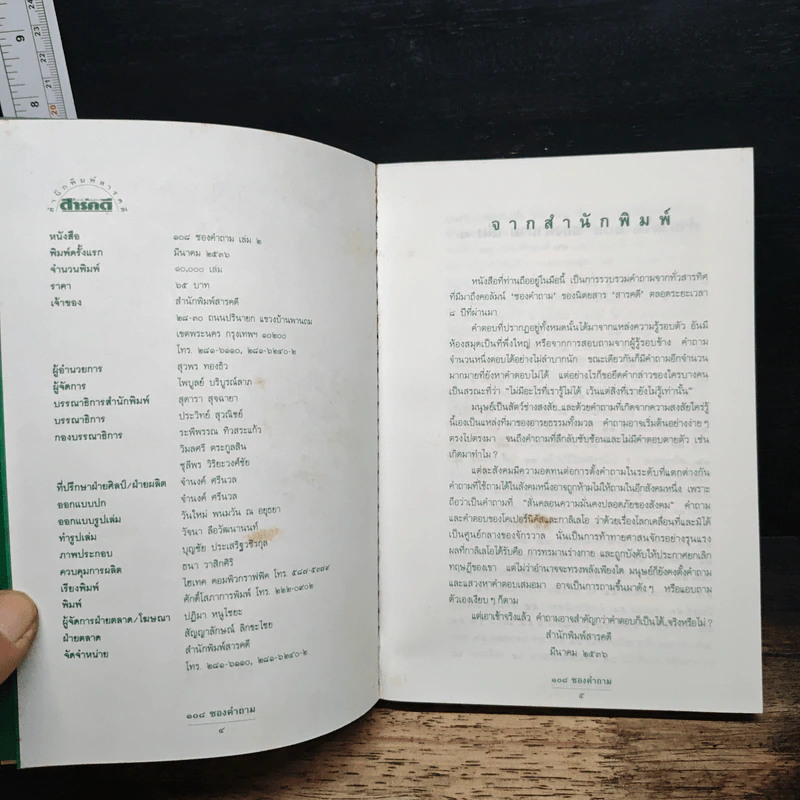 สำนักพิมพ์สารคดี
สารคดี
หนังสือ ๑๐๘ ซองคำถาม เล่ม ๒
พิมพ์ครั้งแรก มีนาคม ๒๕๓๖
จำนวนพิมพ์ ๑๐,๐๐๐ เล่ม
ราคา ๖๕ บาท
เจ้าของ สำนักพิมพ์สารคดี
๒๘-๓๐ ถนนปรินายก แขวงบ้านพานถม
เขตพระนคร กรุงเทพฯ ๑๐๒๐๐
โทร. ๒๘๑-๖๑๑๐, ๒๘๑-๖๒๔๐-๒
ผู้อำนวยการ สุวพร ทองธิว
ผู้จัดการ ไพบูลย์ บริบูรณ์ลาภ
บรรณาธิการสำนักพิมพ์ สุดารา สุจฉายา
บรรณาธิการ ประวิทย์ สุวณิชย์
กองบรรณาธิการ ระพีพรรณ ทิวสระแก้ว
วิมลศรี ตระกูลสิน
ชุลีพร วิริยะวงศ์ชัย
ที่ปรึกษาฝ่ายศิลป์/ฝ่ายผลิต จำนงค์ ศรีนวล
ออกแบบปก จำนงค์ ศรีนวล
ออกแบบรูปเล่ม วันใหม่ พนมวัน ณ อยุธยา
ทำรูปเล่ม วัจนา ลือวัฒนานนท์
ภาพประกอบ บุญชัย ประเสริฐวชิรกุล
ควบคุมการผลิต ธนา วาสิกศิริ
เรียงพิมพ์ ไฮเทค คอมพิวกราฟฟิค โทร. ๕๘๗-๕๓๙๙
พิมพ์ ศักดิ์โสภาการพิมพ์ โทร. ๒๒๒-๐๙๐๒
ผู้จัดการฝ่ายตลาด/โฆษณา ปฏิมา หนูไชยะ
ฝ่ายตลาด สัญญาลักษณ์ ลิกขะไชย
จัดจำหน่าย สำนักพิมพ์สารคดี
โทร. ๒๘๑-๖๑๑๐, ๒๘๑-๖๒๔๐-๒
๑๐๘ ซองคำถาม
๔
จากสำนักพิมพ์
หนังสือที่ท่านถืออยู่ในมือนี้ เป็นการรวบรวมคำถามจากทั่วสารทิศ
ที่มีมาถึงคอลัมน์ 'ซองคำถาม' ของนิตยสาร 'สารคดี' ตลอดระยะเวลา
๘ ปีที่ผ่านมา
คำตอบที่ปรากฏอยู่ทั้งหมดนั้นได้มาจากแหล่งความรู้รอบตัว อันมี
ห้องสมุดเป็นที่พึ่งใหญ่ หรือจากการสอบถามจากผู้รู้รอบข้าง คำถาม
จำนวนหนึ่งตอบได้อย่างไม่ลำบากนัก ขณะเดียวกันก็มีคำถามอีกจำนวน
มากมายที่ยังหาคำตอบไม่ได้ แต่อย่างไรก็ขอยึดคำกล่าวของใครบางคน
เป็นสรณะที่ว่า "ไม่มีอะไรที่เรารู้ไม่ได้ เว้นแต่สิ่งที่เรายังไม่รู้เท่านั้น"
มนุษย์เป็นสัตว์ช่างสงสัย และด้วยคำถามที่เกิดจากความสงสัยใคร่รู้
นี้เองเป็นแหล่งที่มาของอารยธรรมทั้งมวล คำถามอาจเริ่มต้นอย่างง่ายๆ
ตรงไปตรงมา จนถึงคำถามที่ลึกลับซับซ้อนและไม่มีคำตอบตายตัว เช่น
เกิดมาทำไม ?
แต่ละสังคมมีความอดทนต่อการตั้งคำถามในระดับที่แตกต่างกัน
คำถามที่ใช้ถามได้ในสังคมหนึ่งอาจถูกห้ามไม่ให้ถามในอีกสังคมหนึ่ง เพราะ
ถือว่าเป็นคำถามที่ "สั่นคลอนความมั่นคงปลอดภัยของสังคม" คำถาม
และคำตอบของโคเปอร์นิคัสและกาลิเลโอ ว่าด้วยเรื่องโลกเคลื่อนที่และมิได้
เป็นศูนย์กลางของจักรวาล นั่นเป็นการท้าทายศาสนจักรอย่างรุนแรง
ผลที่กาลิเลโอได้รับคือ การทรมานร่างกาย และถูกบังคับให้ประกาศยกเลิก
ทฤษฎีของเขา แต่ไม่ว่าอำนาจจะทรงพลังเพียงใด มนุษย์ก็ยังคงตั้งคำถาม
และแสวงหาคำตอบเสมอมา อาจเป็นการถามขึ้นมาดังๆ หรือแอบถาม
ตัวเองเงียบๆ ก็ตาม
แต่เอาเข้าจริงแล้ว คำถามอาจสำคัญกว่าคำตอบก็เป็นได้..จริงหรือไม่ ?
สำนักพิมพ์สารคดี
มีนาคม ๒๕๓๖
๑๐๘ ซองคำถาม
๕